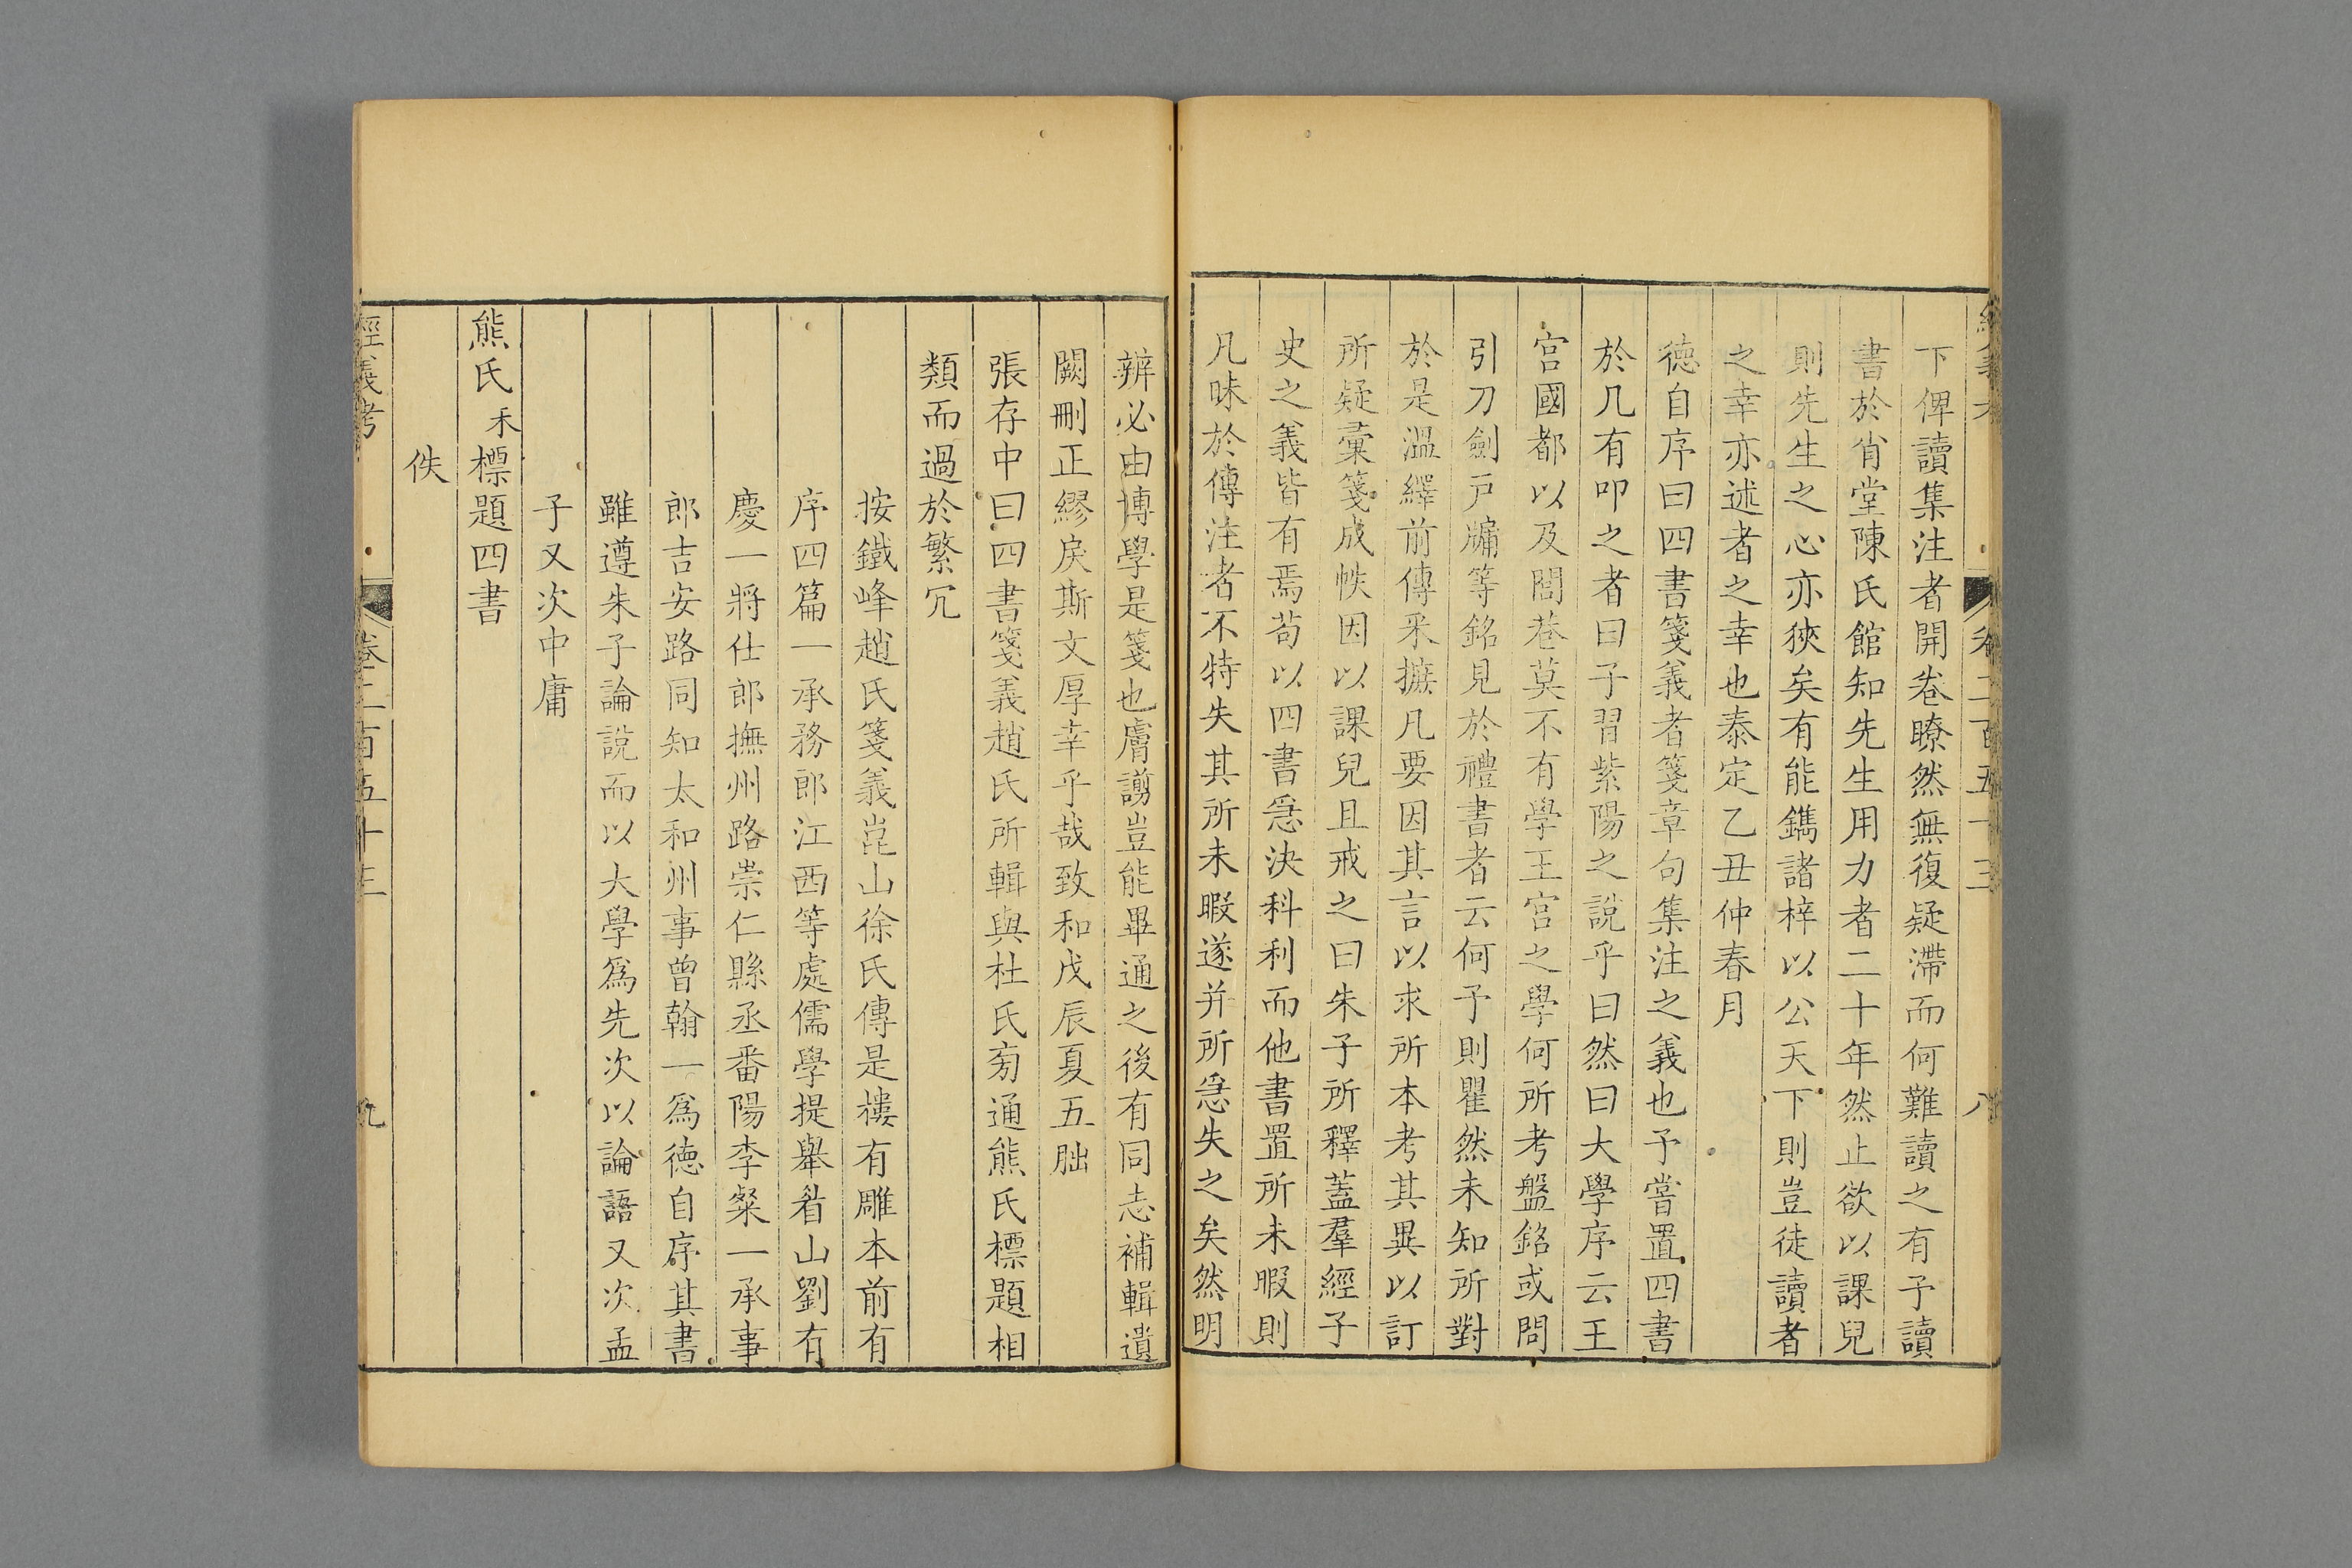 下俾讀集注者開卷瞭然無復疑滯而何難讀之有予讀
書於肯堂陳氏館知先生用力者二十年然止欲以課兒
則先生之心亦狹矣有能鐫諸梓以公天下則豈徒讀者
之幸亦述者之幸也泰定乙丑仲春月
德自序曰四書箋義者箋章句集注之義也予嘗置四書
於几有叩之者曰子習紫陽之說乎曰然曰大學序云王
宮國都以及閭巷莫不有學王宮之學何所考盤銘或問
引刀劍戸牖等銘見於禮書者云何予則瞿然未知所對
於是溫繹前傳采摭凡要因其言以求所本考其異以訂
所疑彙箋成帙因以課兒且戒之曰朱子所釋蓋羣經子
史之義皆有焉茍以四書急決科利而他書置所未暇則
凡昧於傳注者不特失其所未暇遂并所急失之矣然明
辨必由博學是箋也膚謭豈能畢通之後有同志補輯遺
闕刪正繆戾斯文厚幸乎哉致和戊辰夏五朏
張存中曰四書箋義趙氏所輯與杜氏旁通熊氏標題相
類而過於繁冗
按鐵峰趙氏箋義崑山徐氏傳是樓有雕本前有
序四篇一承務郎江西等處儒學提舉眉山劉有
慶一將仕郎撫州路崇仁縣丞番陽李粲一承事
郎吉安路同知太和州事曾翰一爲德自序其書
雖遵朱子論說而以大學爲先次以論語又次孟
子又次中庸
熊氏禾標題四書
佚
經義考
卷二百五十三
九